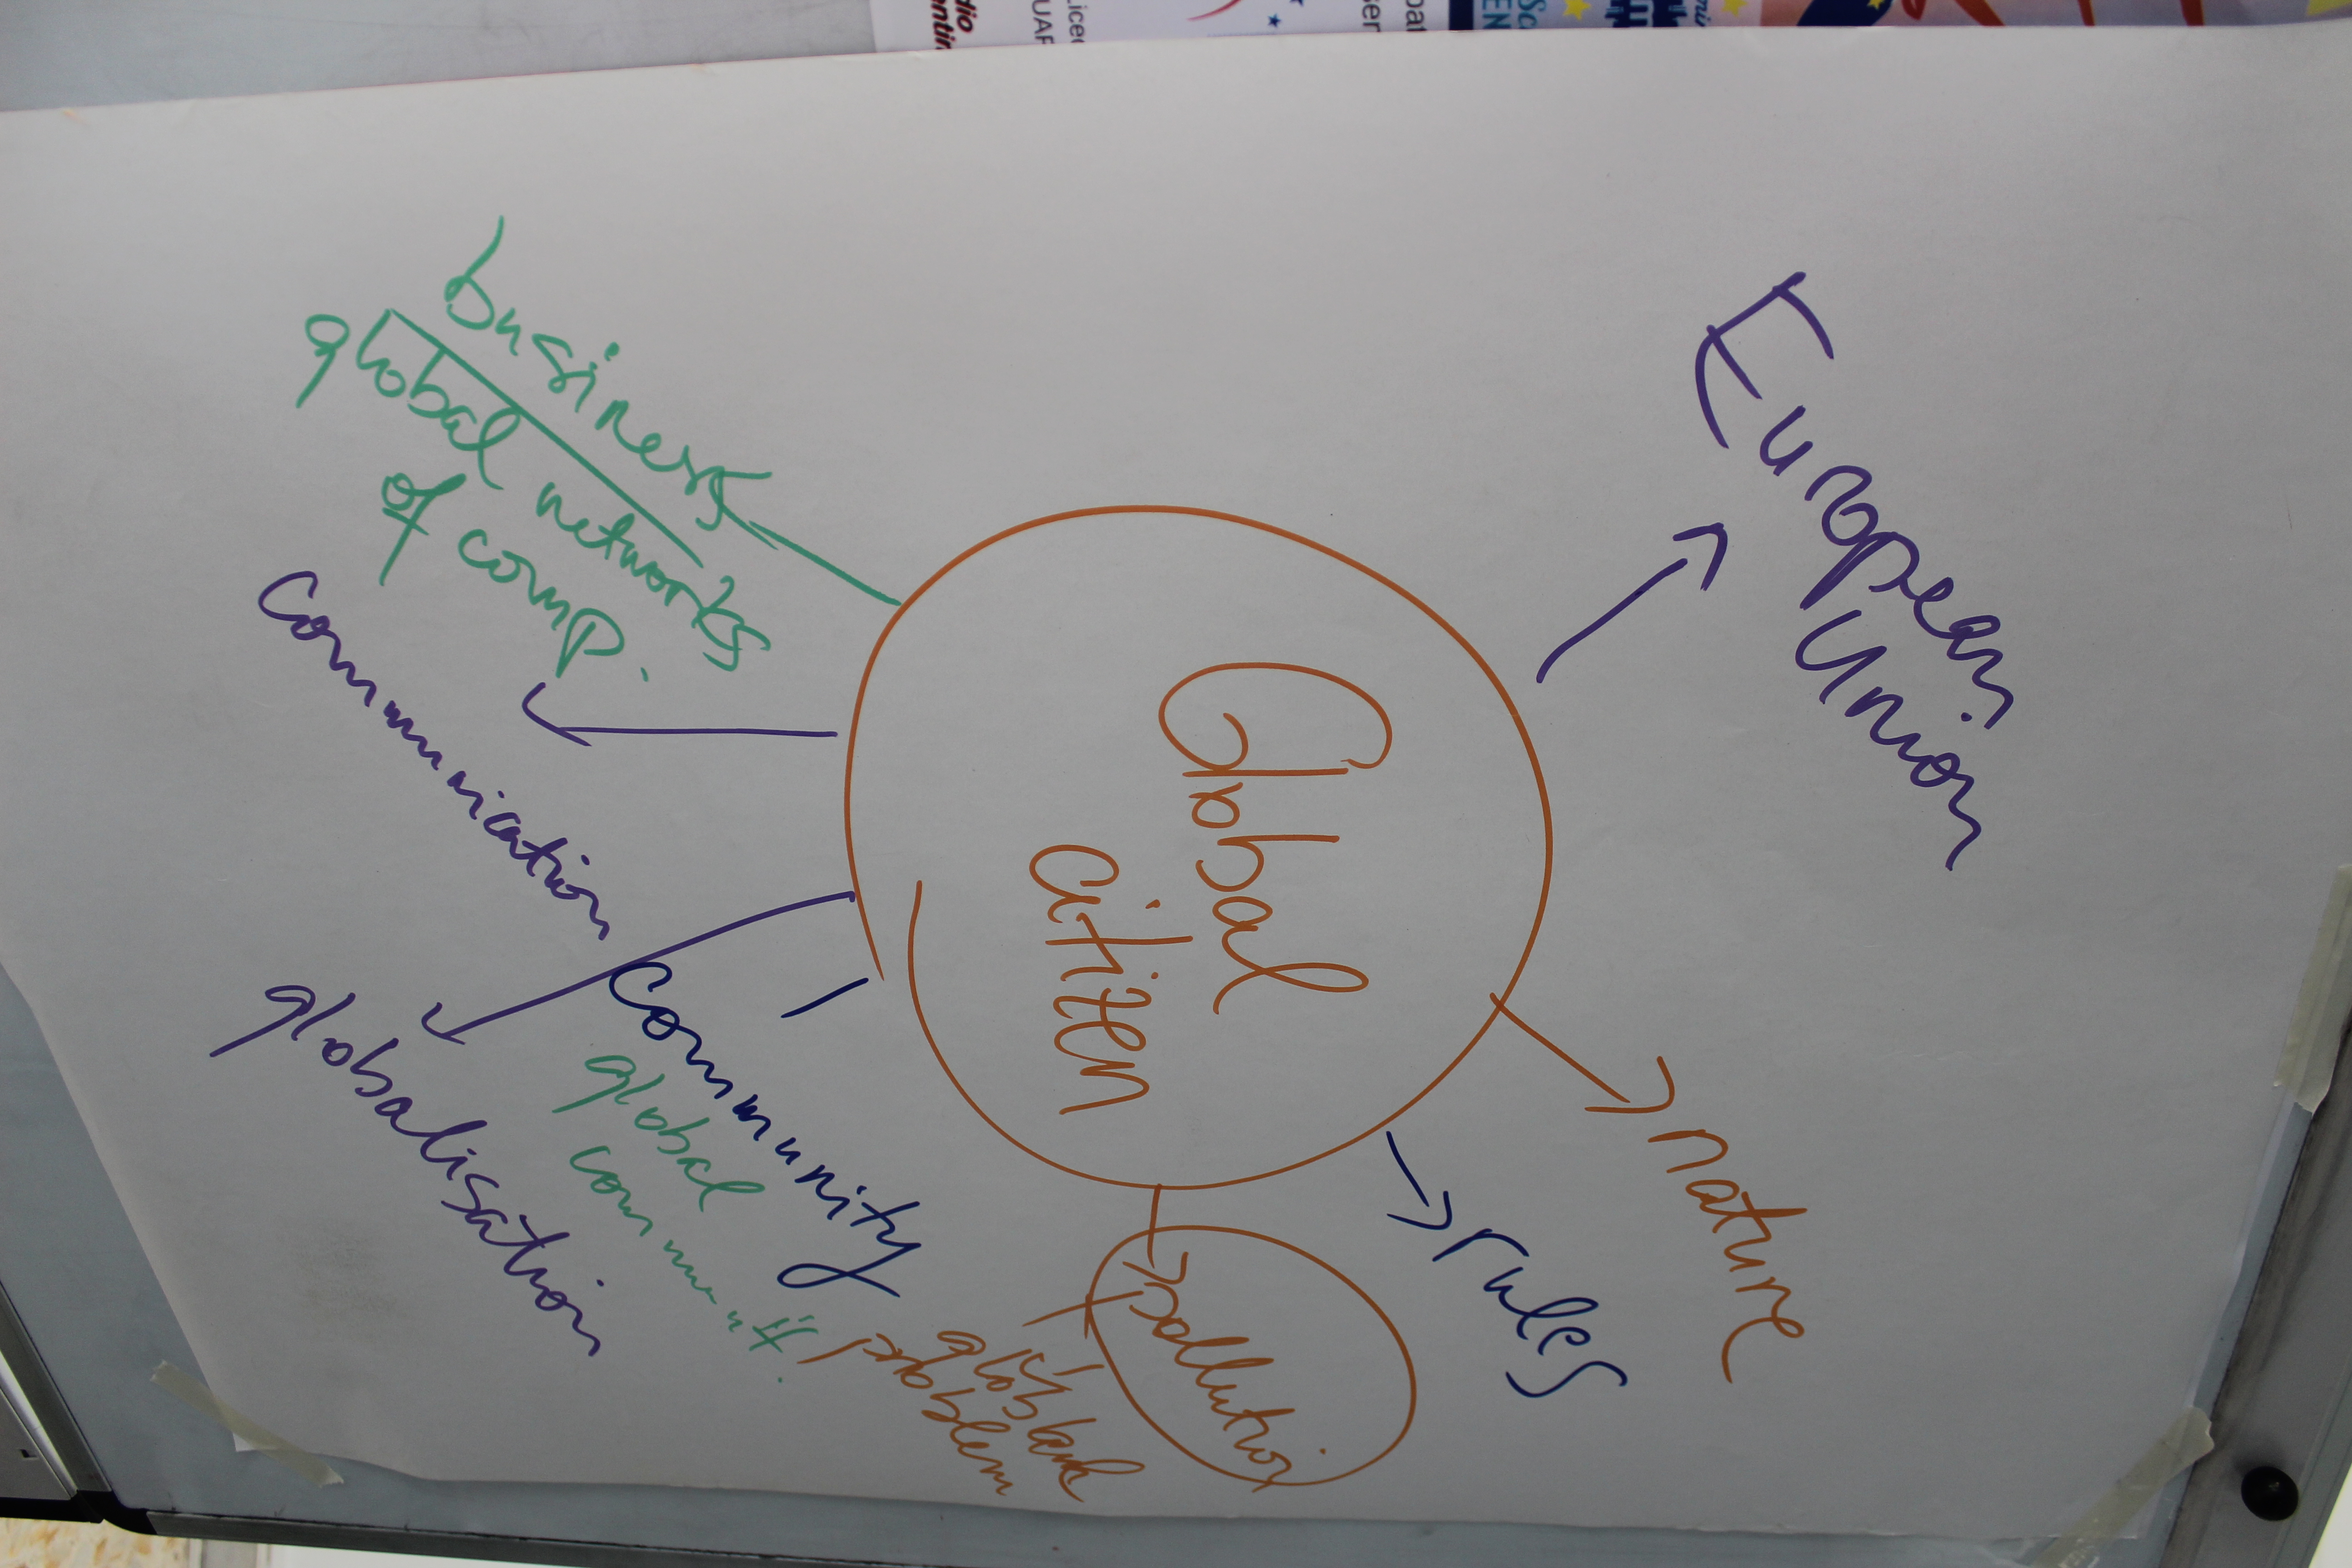 European
Union
nature
rules
Global
citizen
pollution
global
problem
business
global networks
of comp.
Communication
Community
global
communit.
globalisation